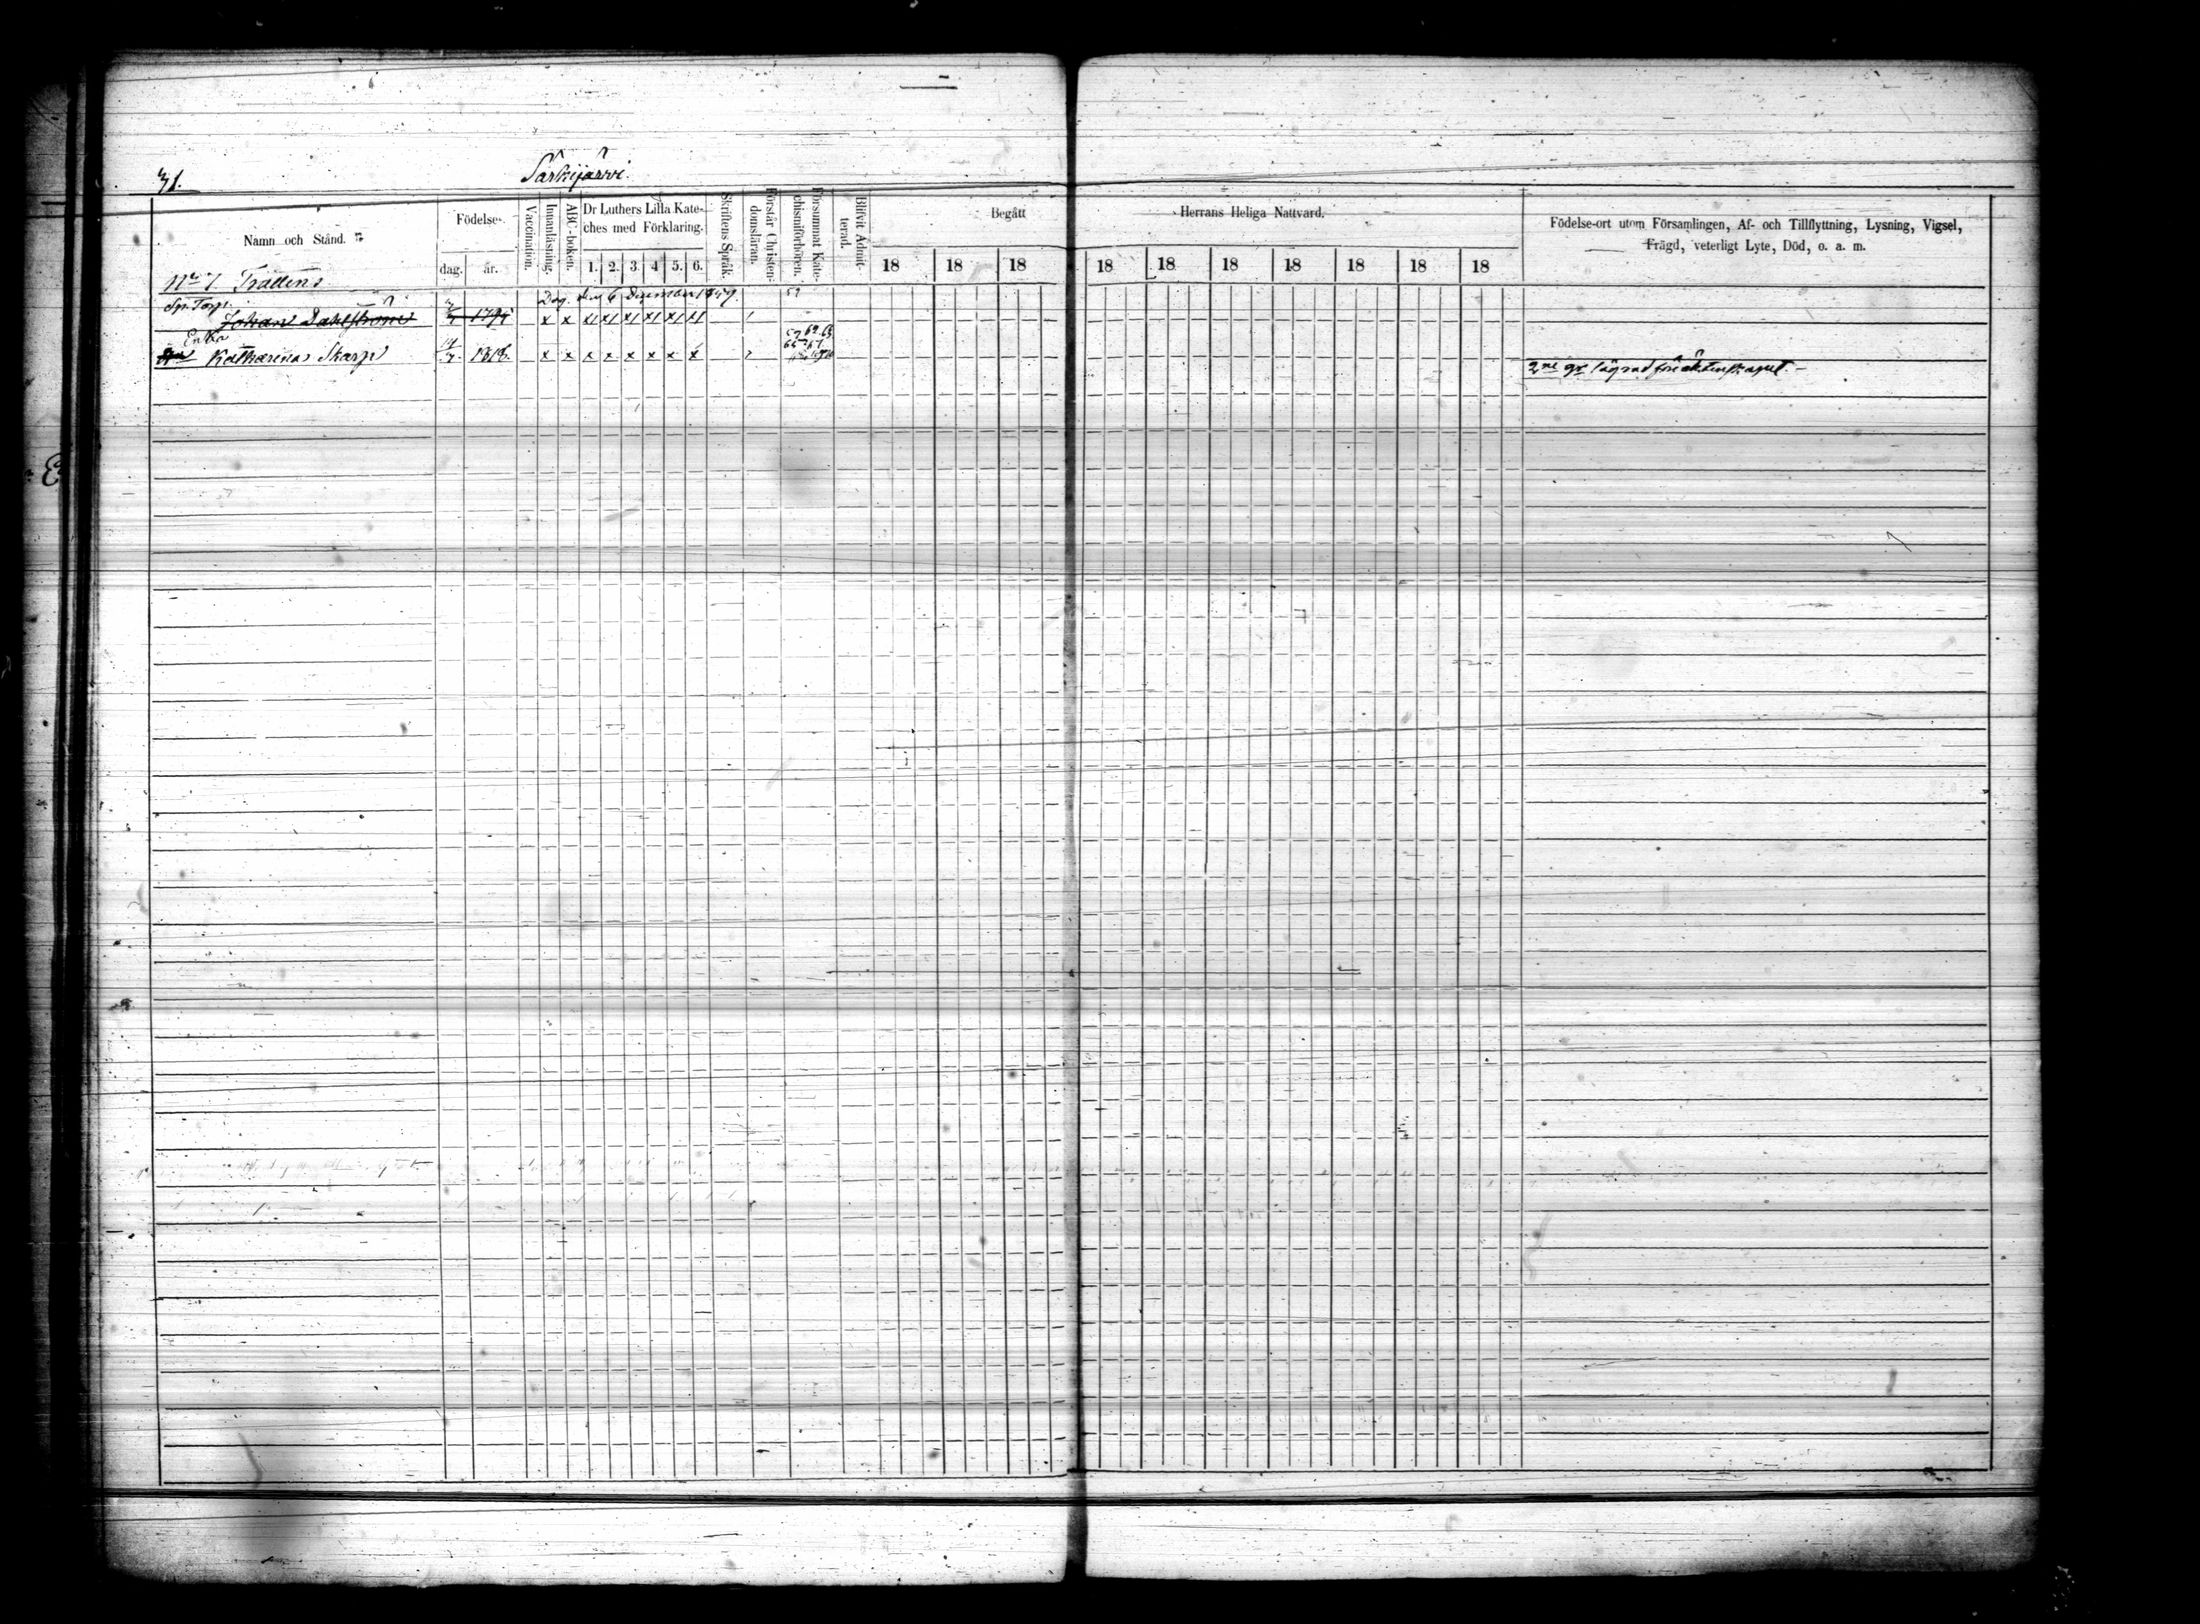 71.
Särkijärvi.
Namn och Stånd.
Födelse-
dag. år.
Vaccination.
Innanläsning.
ABC-boken.
Dr Luthers Lilla Kate-
ches med Förklaring.
1. 2. 3. 4. 5. 6.
Skriftens Språk.
Förstår Christen-
domsläran.
Försummat Kate-
chismiförhören.
Blifvit Admit-
terad.
Begått
Herrans Heliga Nattvard.
18 18 18 18 18 18 18 18 18 18
Födelse-ort utom Församlingen, Af- och Tillflyttning, Lysning, Vigsel,
Frägd, veterligt Lyte, Död, o. a. m.
No 7. Trättens
Sp. Torp.
Dog den 6 December 1859. 59
Johan Dahlström 1794 x x x1 x1 x1 x1 x1 x1
Enka
Katharina Skarp 14/7. 1818. x x x x x x x x
2ne gr lägrad före äktenskapet.